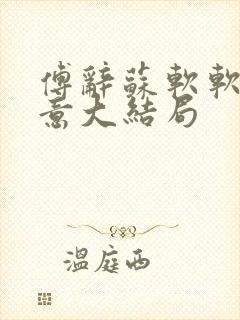 傅辭蘇軟軟
意大結局
溫庭西